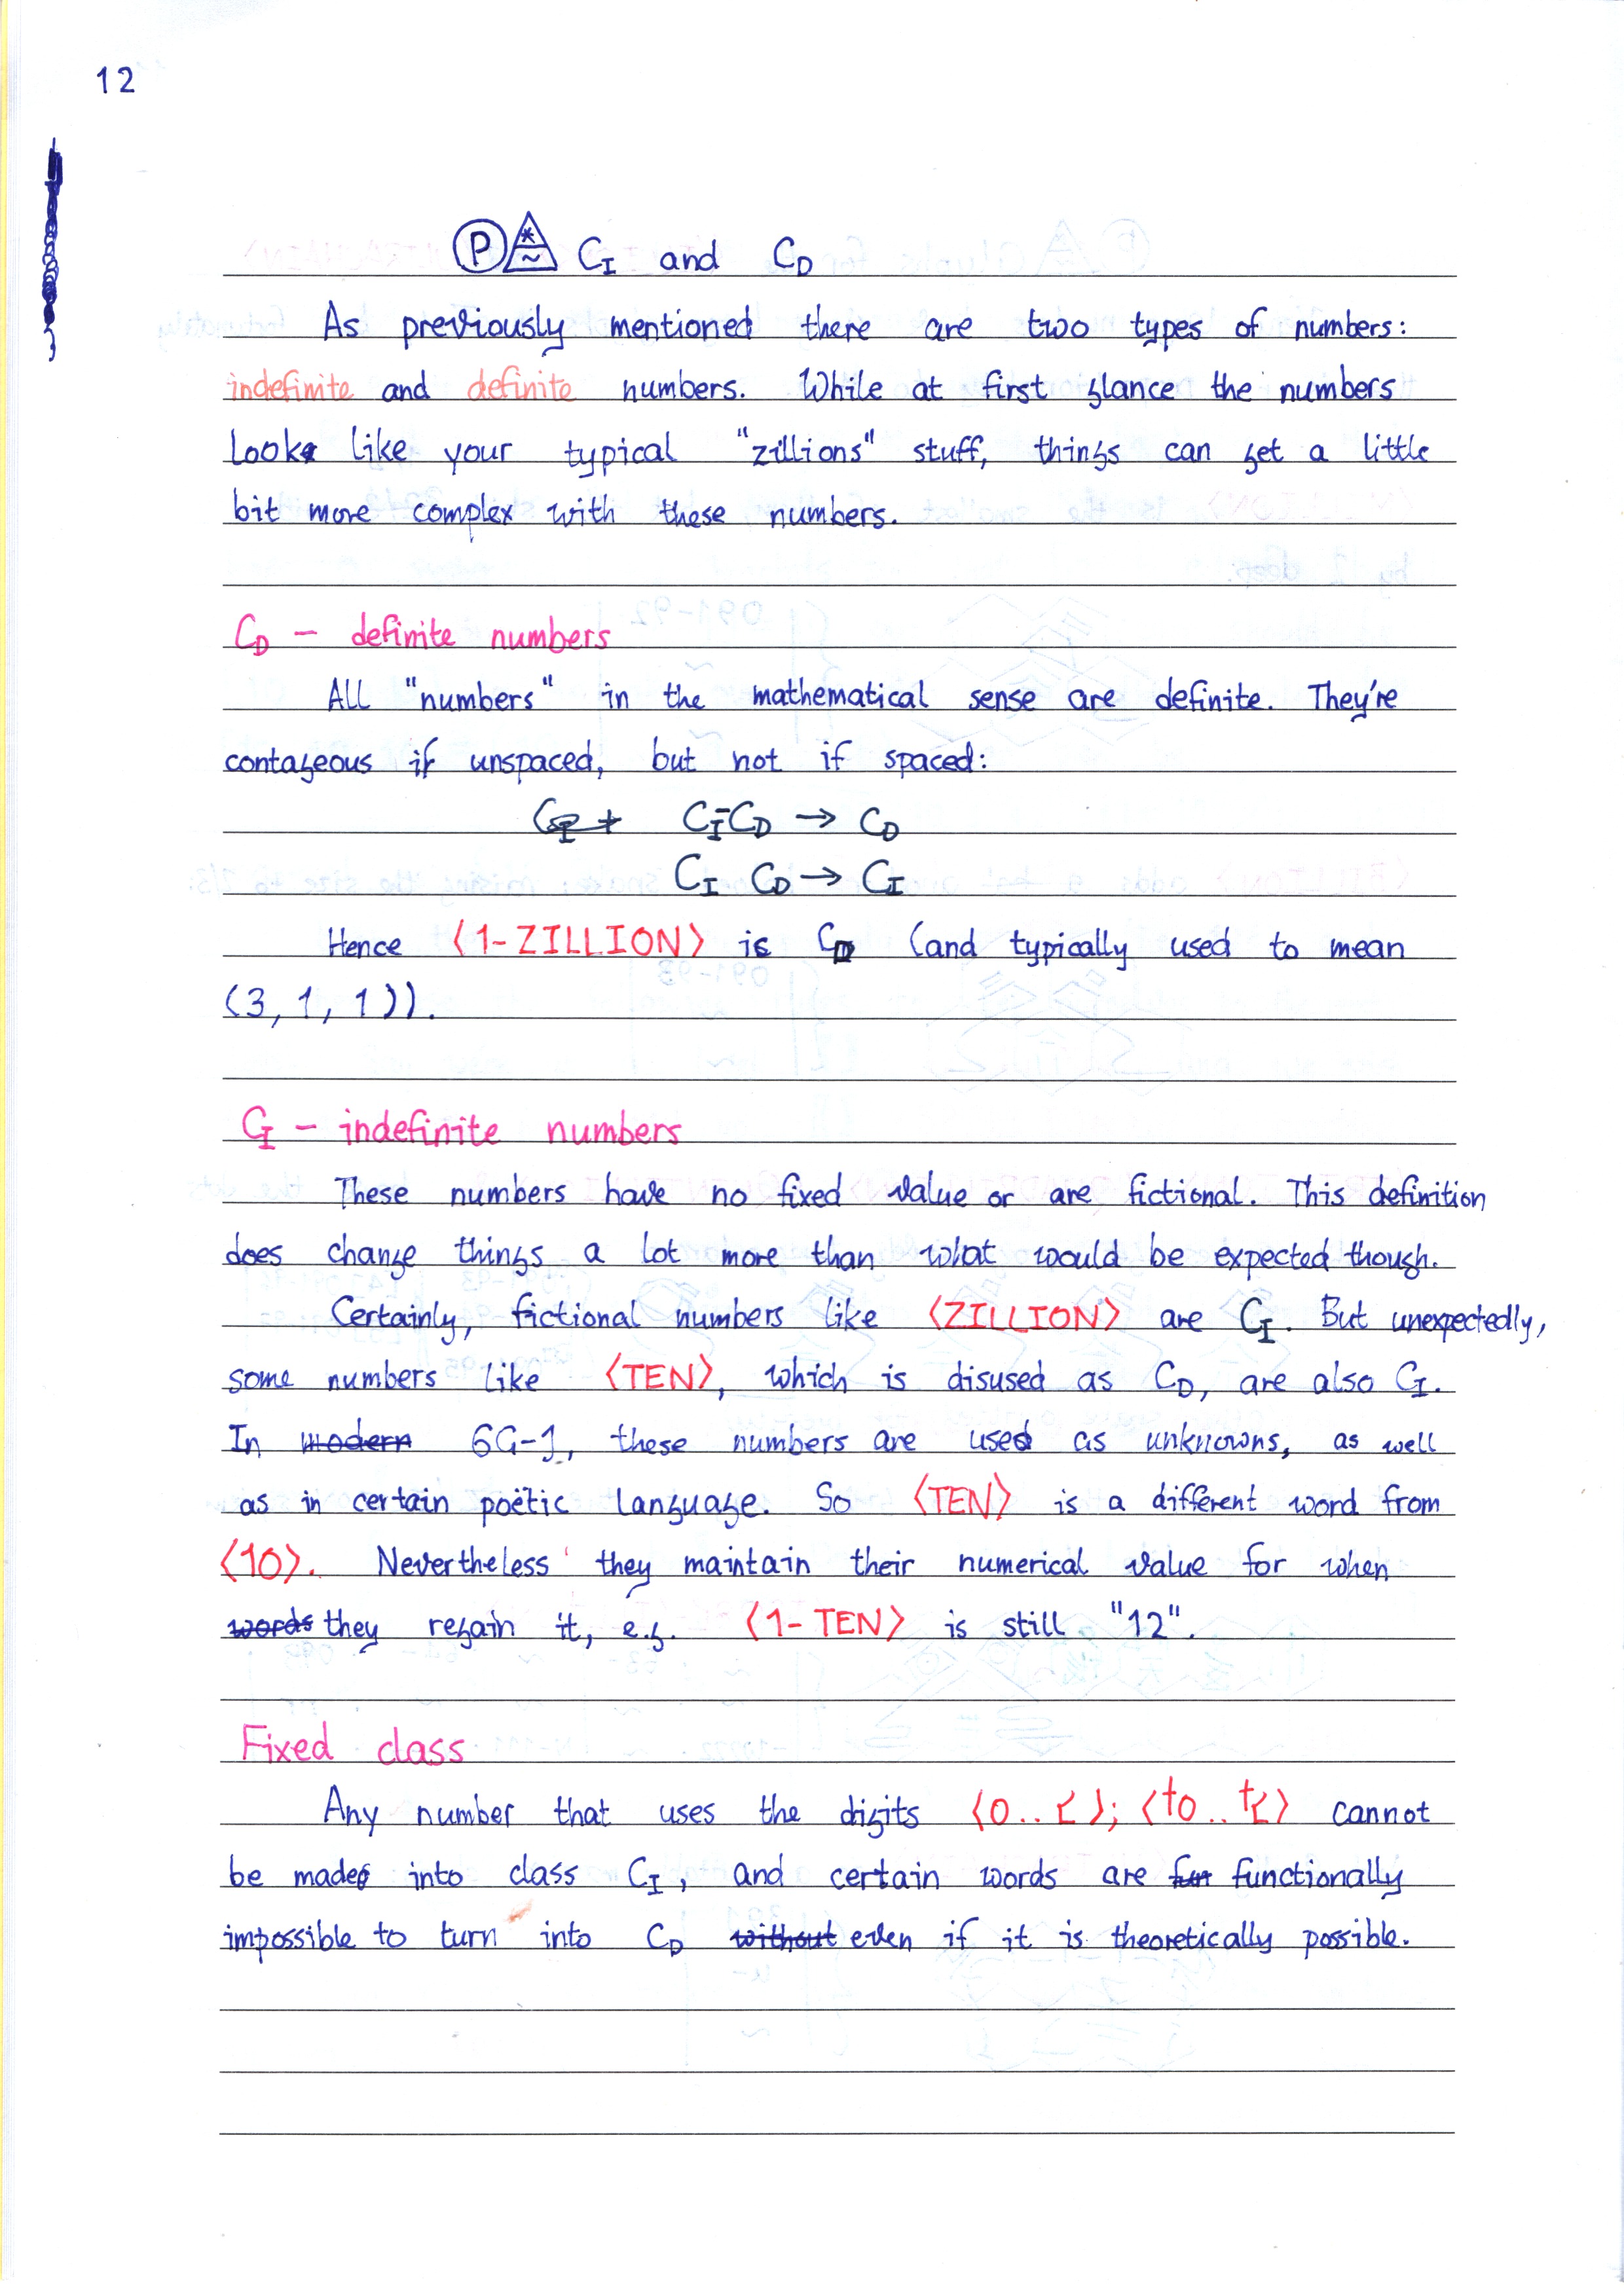 12
Ⓟ * ~ C_I and C_D
As previously mentioned there are two types of numbers:
indefinite and definite numbers. While at first glance the numbers
look like your typical "zillions" stuff, things can get a little
bit more complex with these numbers.
C_D – definite numbers
All "numbers" in the mathematical sense are definite. They're
contageous if unspaced, but not if spaced:
C_I-C_D → C_D
C_I C_D → C_I
Hence ⟨1-ZILLION⟩ is C_D (and typically used to mean
(3, 1, 1)).
C_I – indefinite numbers
These numbers have no fixed value or are fictional. This definition
does change things a lot more than what would be expected though.
Certainly, fictional numbers like ⟨ZILLION⟩ are C_I. But unexpectedly,
some numbers like ⟨TEN⟩, which is disused as C_D, are also C_I.
In modern 6G-1, these numbers are used as unknowns, as well
as in certain poëtic language. So ⟨TEN⟩ is a different word from
⟨10⟩. Nevertheless they maintain their numerical value for when
words they regain it, e.g. ⟨1-TEN⟩ is still "12".
Fixed class
Any number that uses the digits ⟨0.. ⟩; ⟨t0.. ⟩ cannot
be made into class C_I, and certain words are fun functionally
impossible to turn into C_D without even if it is theoretically possible.